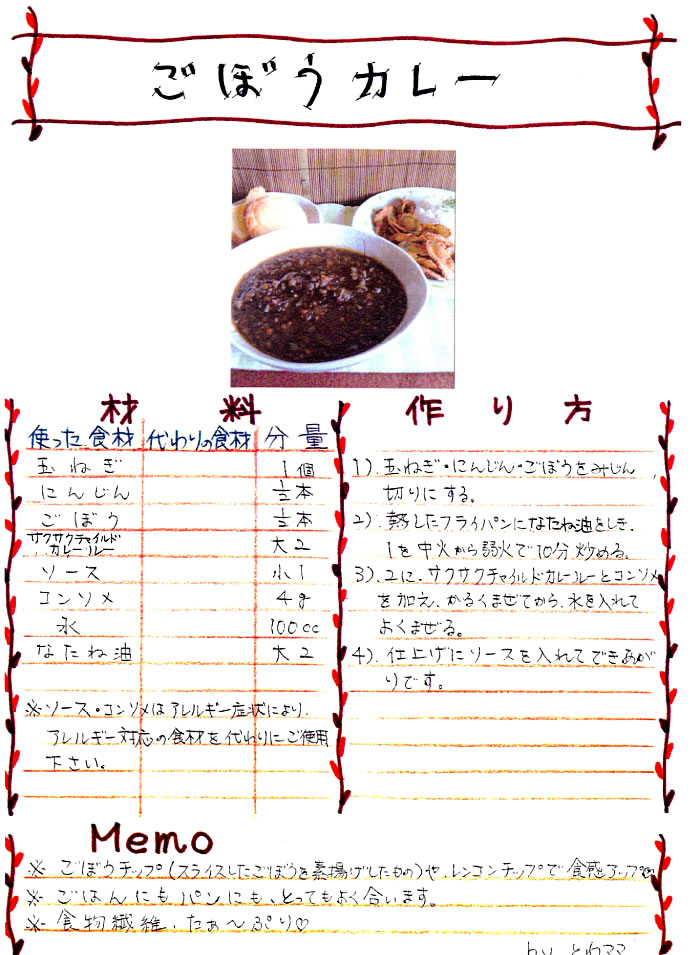 ごぼうカレー
材料
使った食材 代わりの食材 分量
玉ねぎ 1個
にんじん 1/2本
ごぼう 1/2本
サクサクチャイルドカレールー 大2
ソース 小1
コンソメ 4g
水 100cc
なたね油 大2
※ソース・コンソメはアレルギー症状により、
アレルギー対応の食材を代わりにご使用
下さい。
作り方
1).玉ねぎ・にんじん・ごぼうをみじん
切りにする。
2).熱したフライパンになたね油をしき、
1を中火から弱火で10分炒める。
3).2に、サクサクチャイルドカレールーとコンソメ
を加え、かるくまぜてから、水を入れて
よくまぜる。
4).仕上げにソースを入れてできあが
りです。
Memo
※ごぼうチップ(スライスしたごぼうを素揚げしたもの)や、レンコンチップで食感アップ
※ごはんにもパンにも、とってもよく合います。
※食物繊維、たぁ〜ぷり♡
by